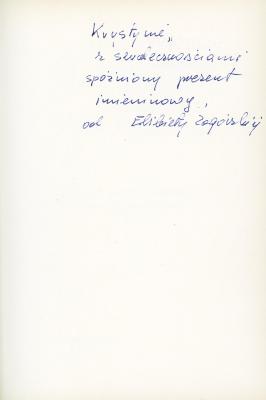 Krystynie,
z serdecznościami
spóźniony prezent
imieninowy,
od Elżbiety Zagórskiej